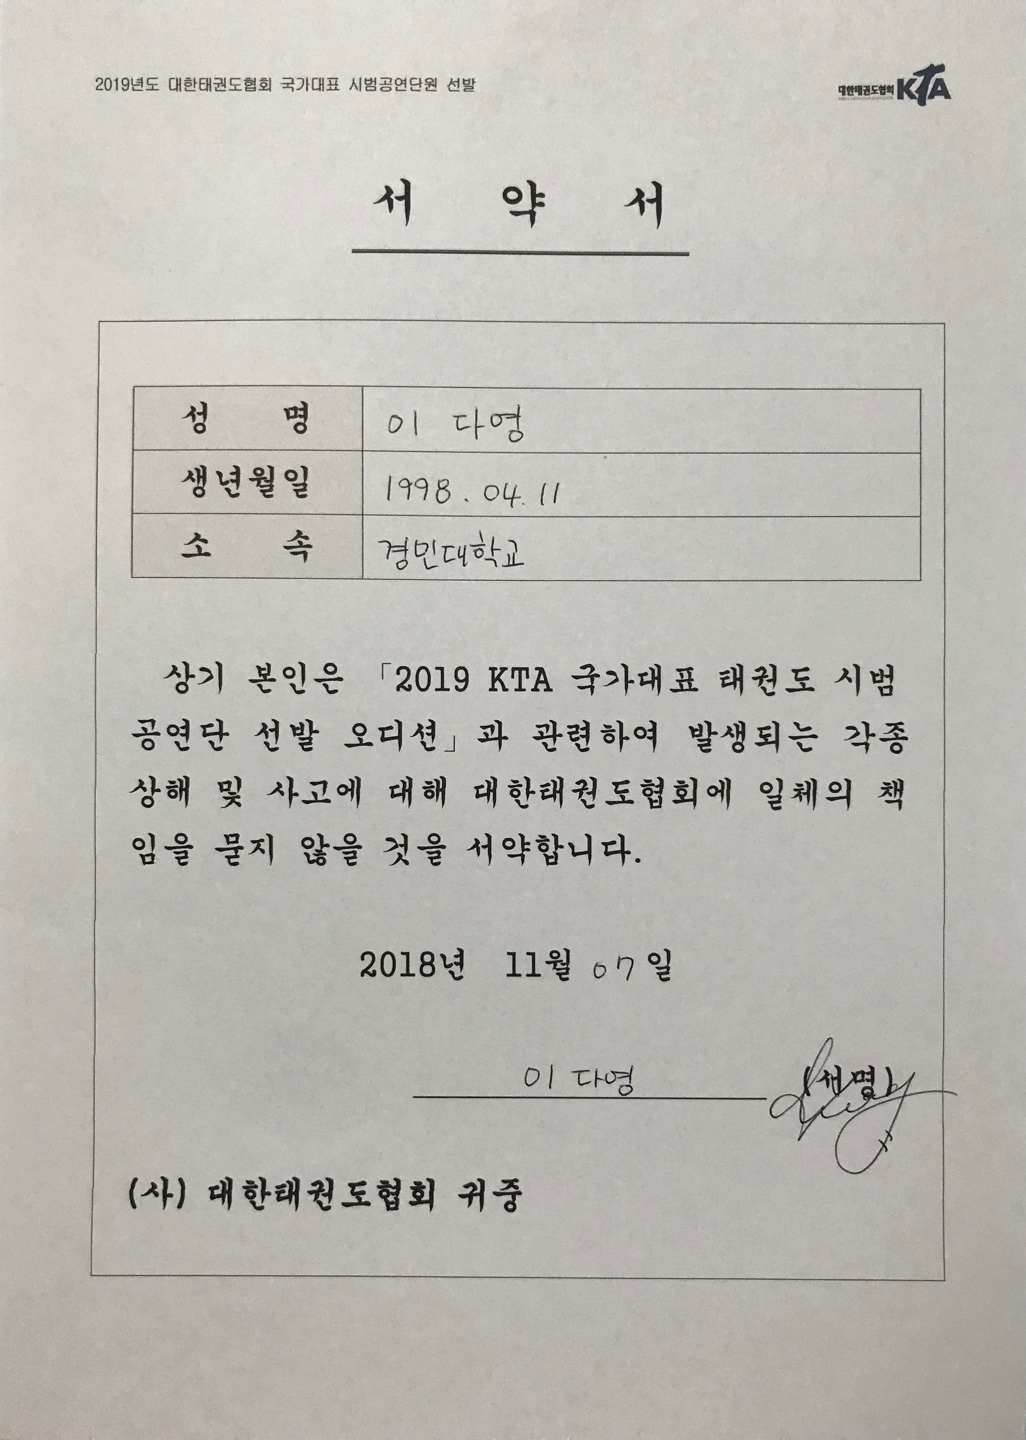 2019년도 대한태권도협회 국가대표 시범공연단원 선발
대한태권도협회 KTA
서 약 서
성 명 이 다영
생년월일 1998.04.11
소 속 경민대학교
상기 본인은 「2019 KTA 국가대표 태권도 시범
공연단 선발 오디션」과 관련하여 발생되는 각종
상해 및 사고에 대해 대한태권도협회에 일체의 책
임을 묻지 않을 것을 서약합니다.
2018년 11월 07일
이 다영 (서명)
(사) 대한태권도협회 귀중